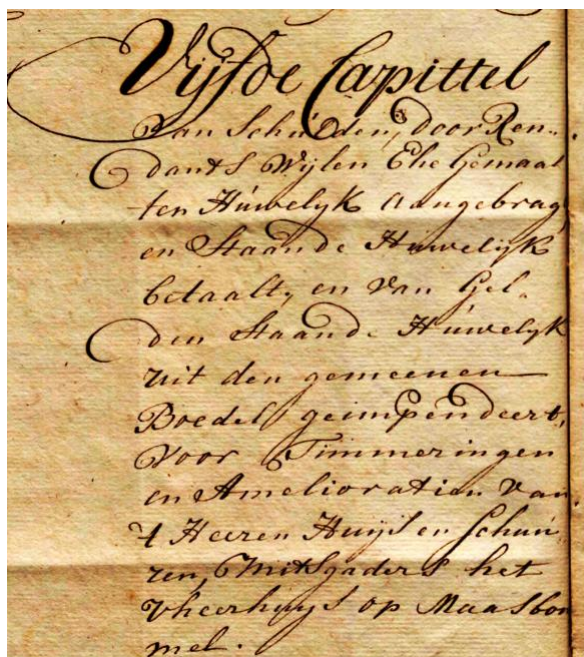 Vijfde Capittel
Van Schulden, door Ren-
dants Wijlen Ehe Gemaal
ten Húwelyk aangebrag
en Staande Húwelijk
betaalt, en van Gel-
den Staande Húwelyk
uit den gemeenen
Boedel geimpendeert,
voor Timmeringen
en Amelioratien van
't Heeren Huijs en Schuú-
ren, Mitsgaders het
Vheerhuijs op Maasbom
mel.